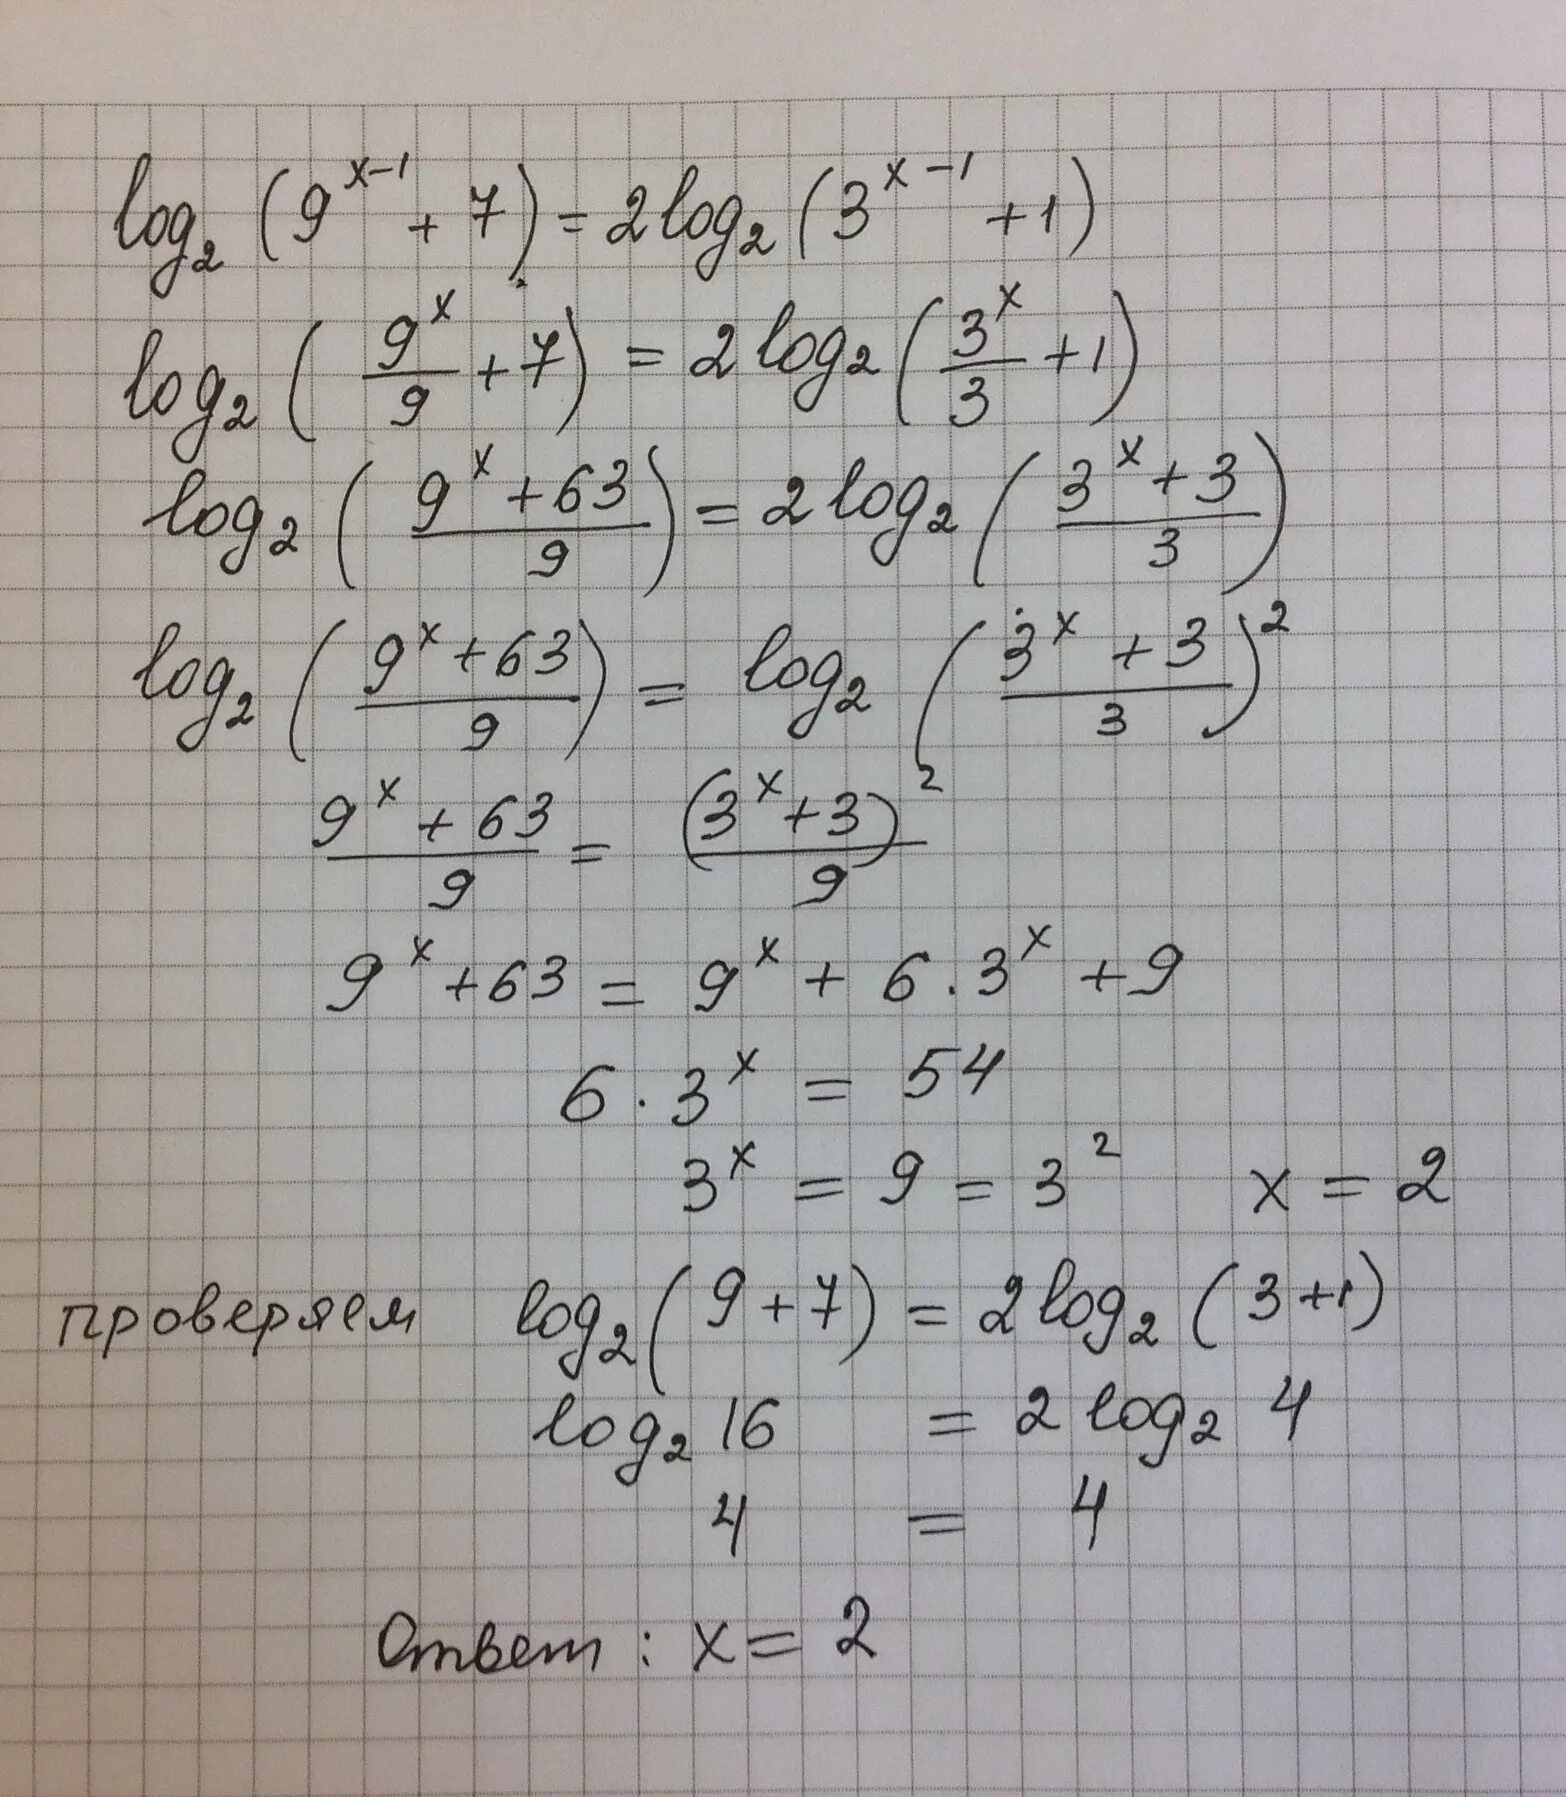 log₂(9^(x-1) + 7) = 2log₂(3^(x-1) + 1)
log₂(9^x/9 + 7) = 2log₂(3^x/3 + 1)
log₂((9^x + 63)/9) = 2log₂((3^x + 3)/3)
log₂((9^x + 63)/9) = log₂((3^x + 3)/3)²
(9^x + 63)/9 = (3^x + 3)²/9
9^x + 63 = 9^x + 6·3^x + 9
6·3^x = 54
3^x = 9 = 3² x = 2
проверяем log₂(9 + 7) = 2log₂(3 + 1)
log₂ 16 = 2 log₂ 4
4 = 4
Ответ: x = 2